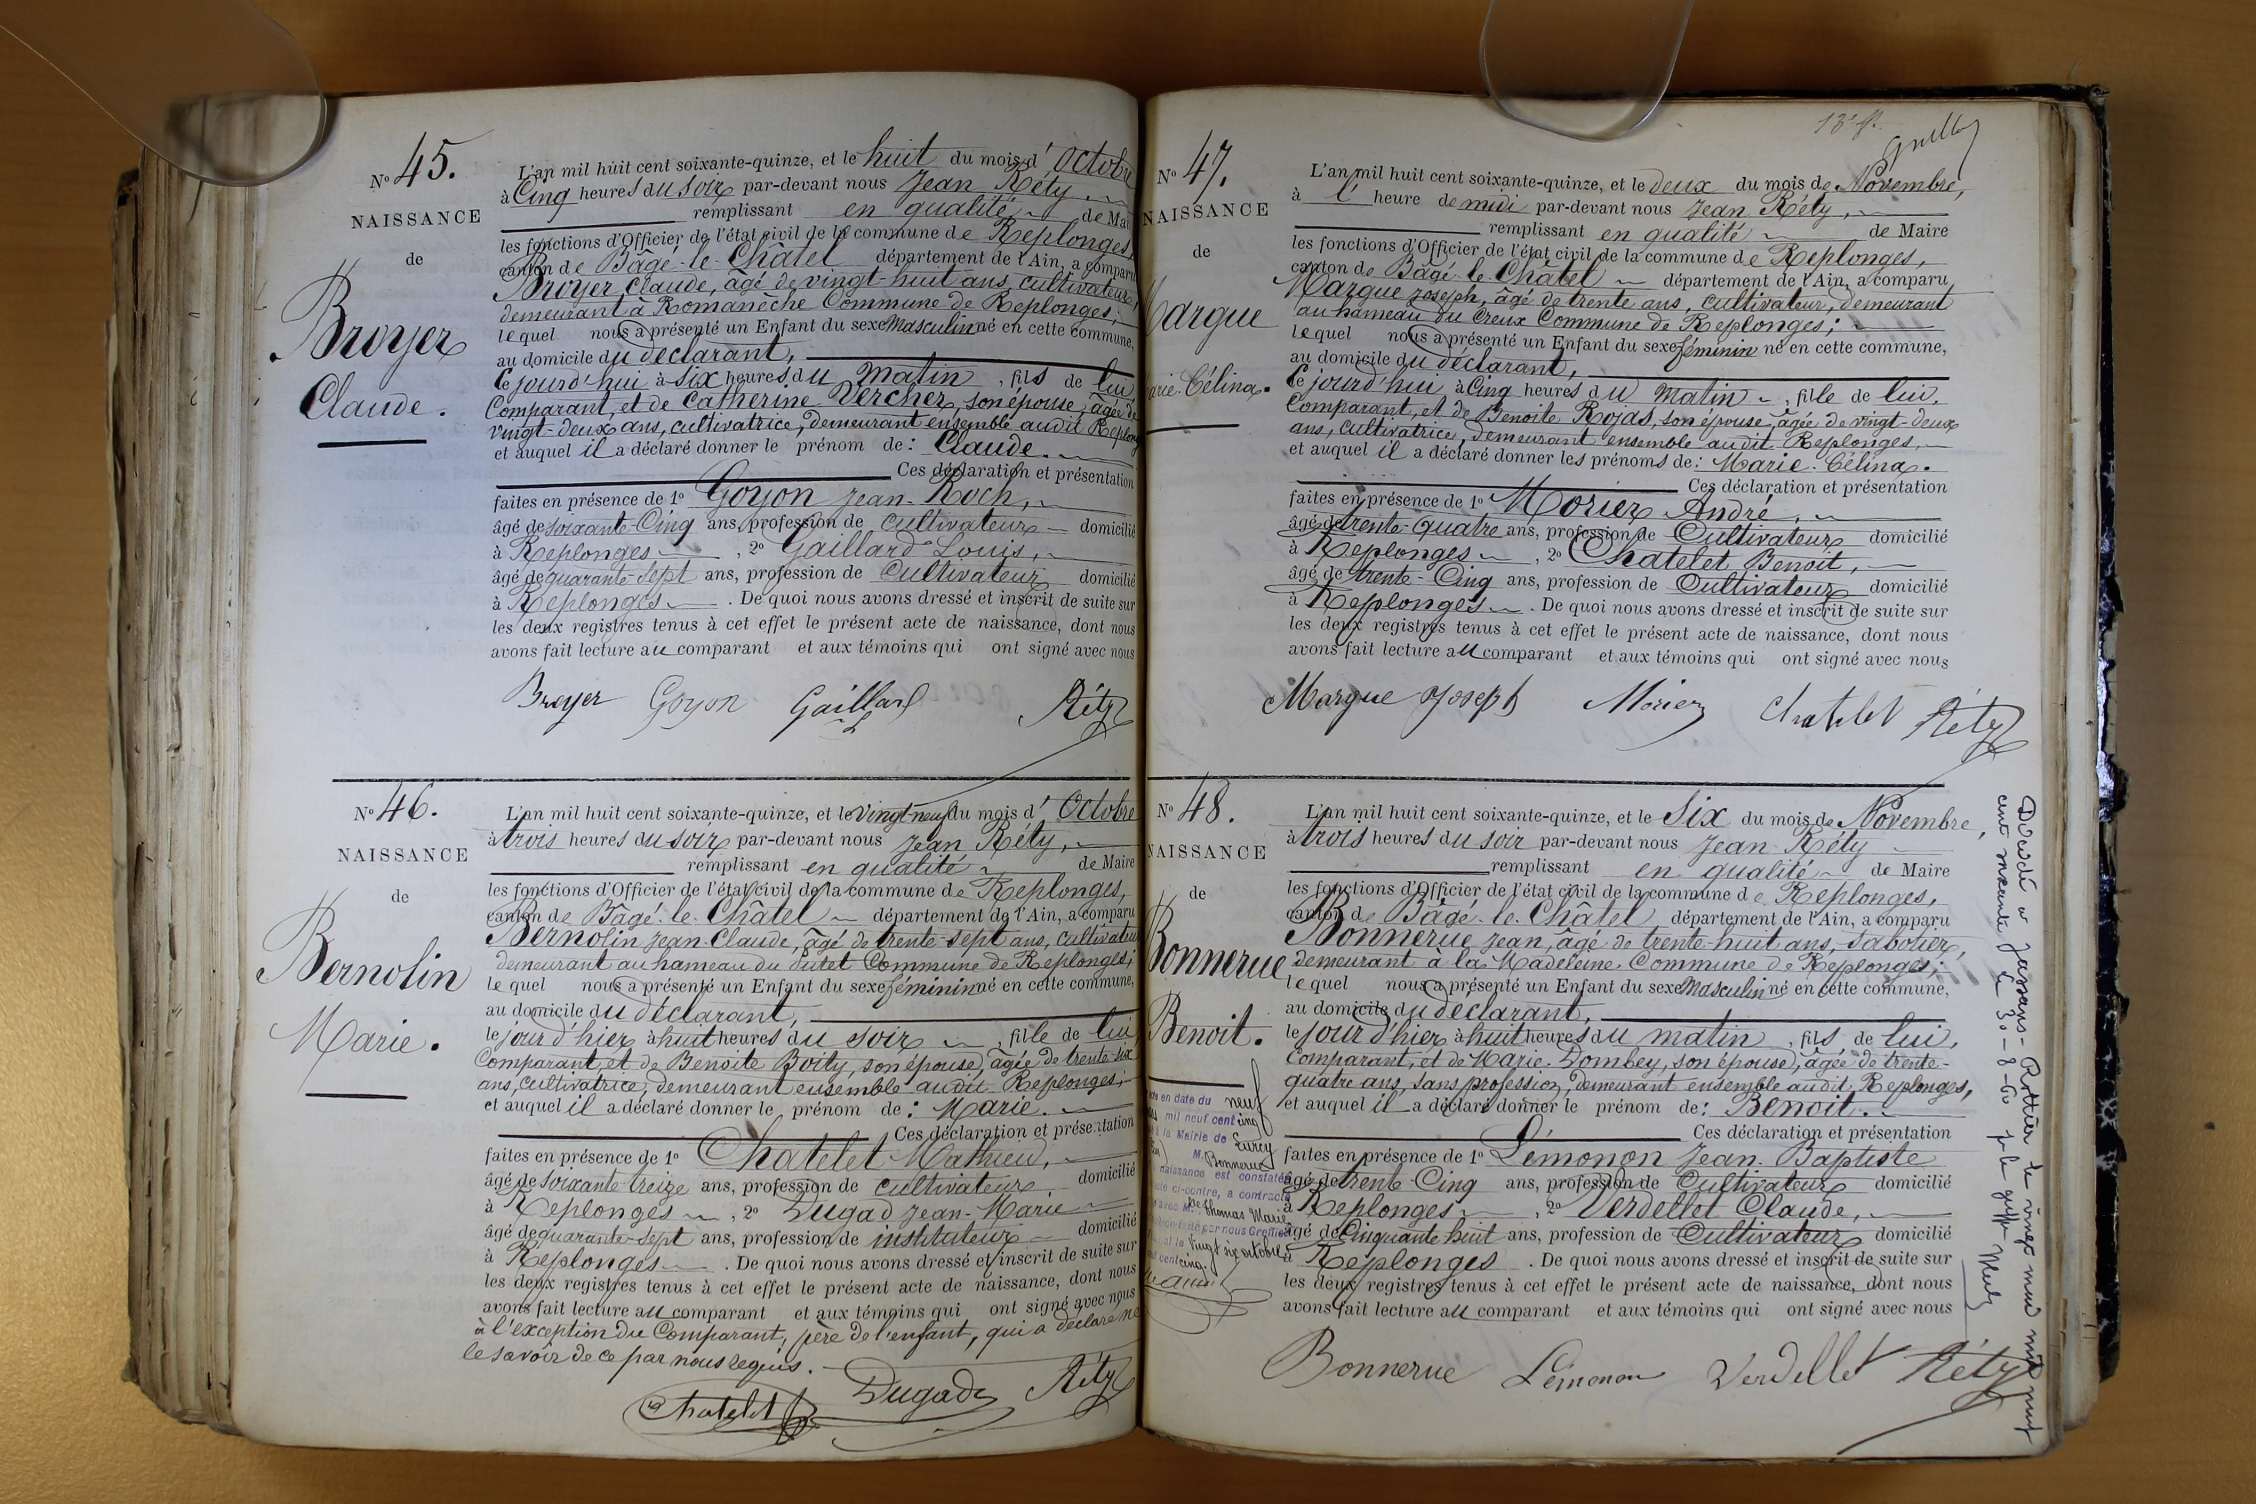 N° 45.
NAISSANCE
de
Broyer
Claude.
L'an mil huit cent soixante-quinze, et le huit du mois d'Octobre
à Cinq heures du soir par-devant nous Jean Réty,
remplissant en qualité de Mai
les fonctions d'Officier de l'état civil de la commune de Replonges,
canton de Bâgé-le-Châtel département de l'Ain, a comparu
Broyer Claude, âgé de vingt-huit ans, cultivateur,
demeurant à Romanèche Commune de Replonges;
lequel nous a présenté un Enfant du sexe Masculin né en cette commune,
au domicile du déclarant,
Ce jourd'hui à six heures du Matin, fils de lui
Comparant, et de Catherine Vercher, son épouse, âgée de
vingt-deux ans, cultivatrice, demeurant ensemble audit Replonges
et auquel il a déclaré donner le prénom de: Claude.
Ces déclaration et présentation
faites en présence de 1° Goyon Jean-Roch,
âgé de soixante-Cinq ans, profession de cultivateur domicilié
à Replonges, 2° Gaillard Louis,
âgé de quarante-sept ans, profession de Cultivateur domicilié
à Replonges. De quoi nous avons dressé et inscrit de suite sur
les deux registres tenus à cet effet le présent acte de naissance, dont nous
avons fait lecture au comparant et aux témoins qui ont signé avec nous
Broyer Goyon Gaillard Réty
N° 46.
NAISSANCE
de
Bernolin
Marie.
L'an mil huit cent soixante-quinze, et le vingt-neuf du mois d'Octobre
à trois heures du soir par-devant nous Jean Réty,
remplissant en qualité de Maire
les fonctions d'Officier de l'état civil de la commune de Replonges,
canton de Bâgé-le-Châtel département de l'Ain, a comparu
Bernolin Jean-Claude, âgé de trente-sept ans, cultivateur
demeurant au hameau du Commune de Replonges;
lequel nous a présenté un Enfant du sexe féminin né en cette commune,
au domicile du déclarant,
le jour d'hier à huit heures du soir, fille de lui
Comparant, et de Benoite Boity, son épouse, âgée de trente-six
ans, cultivatrice, demeurant ensemble audit Replonges;
et auquel il a déclaré donner le prénom de: Marie.
Ces déclaration et présentation
faites en présence de 1° Chatelet Mathieu,
âgé de soixante-treize ans, profession de cultivateur domicilié
à Replonges, 2° Dugad Jean-Marie
âgé de quarante-sept ans, profession de instituteur domicilié
à Replonges. De quoi nous avons dressé et inscrit de suite sur
les deux registres tenus à cet effet le présent acte de naissance, dont nous
avons fait lecture au comparant et aux témoins qui ont signé avec nous
à l'exception du Comparant, père de l'enfant, qui a déclaré ne
le savoir de ce par nous requis.
Chatelet Dugad Réty
13e f.
N° 47.
NAISSANCE
de
Margue
Marie-Célina.
L'an mil huit cent soixante-quinze, et le deux du mois de Novembre,
à l' heure de midi par-devant nous Jean Réty,
remplissant en qualité de Maire
les fonctions d'Officier de l'état civil de la commune de Replonges,
canton de Bâgé-le-Châtel département de l'Ain, a comparu
Margue Joseph, âgé de trente ans, cultivateur, demeurant
au hameau du Creux Commune de Replonges;
lequel nous a présenté un Enfant du sexe féminin né en cette commune,
au domicile du déclarant,
Ce jourd'hui à Cinq heures du Matin, fille de lui,
Comparant, et de Benoite Rojas, son épouse, âgée de vingt-deux
ans, Cultivatrice, demeurant ensemble audit Replonges,
et auquel il a déclaré donner les prénoms de: Marie-Célina.
Ces déclaration et présentation
faites en présence de 1° Morier André,
âgé de trente-quatre ans, profession de Cultivateur domicilié
à Replonges, 2° Chatelet Benoit,
âgé de trente-Cinq ans, profession de Cultivateur domicilié
à Replonges. De quoi nous avons dressé et inscrit de suite sur
les deux registres tenus à cet effet le présent acte de naissance, dont nous
avons fait lecture au comparant et aux témoins qui ont signé avec nous
Margue Joseph Morier Chatelet Réty
N° 48.
NAISSANCE
de
Bonnerue
Benoit.
en date du neuf
mil neuf cent cinq
à la Mairie de Lurcy
M. Bonnerue
naissance est constatée
ci-contre, a contracté
Thomas Marie
par nous Greffier
le vingt six octobre
cent cinq.
L'an mil huit cent soixante-quinze, et le Six du mois de Novembre,
à trois heures du soir par-devant nous Jean Réty
remplissant en qualité de Maire
les fonctions d'Officier de l'état civil de la commune de Replonges,
canton de Bâgé-le-Châtel département de l'Ain, a comparu
Bonnerue Jean, âgé de trente-huit ans, Sabotier,
demeurant à la Madeleine Commune de Replonges;
lequel nous a présenté un Enfant du sexe Masculin né en cette commune,
au domicile du déclarant,
le jour d'hier à huit heures du matin, fils de lui,
Comparant, et de Marie Dombey, son épouse, âgée de trente-
quatre ans, sans profession, demeurant ensemble audit Replonges,
et auquel il a déclaré donner le prénom de: Benoit.
Ces déclaration et présentation
faites en présence de 1° Lémonon Jean-Baptiste
âgé de trente-Cinq ans, profession de Cultivateur domicilié
à Replonges, 2° Verdellet Claude,
âgé de Cinquante-huit ans, profession de Cultivateur domicilié
à Replonges. De quoi nous avons dressé et inscrit de suite sur
les deux registres tenus à cet effet le présent acte de naissance, dont nous
avons fait lecture au comparant et aux témoins qui ont signé avec nous
Bonnerue Lémonon Verdellet Réty
Décédé à Jassans-Rottier le cinq mai mil neuf
cent soixante le 30-8-60 p. le greffier